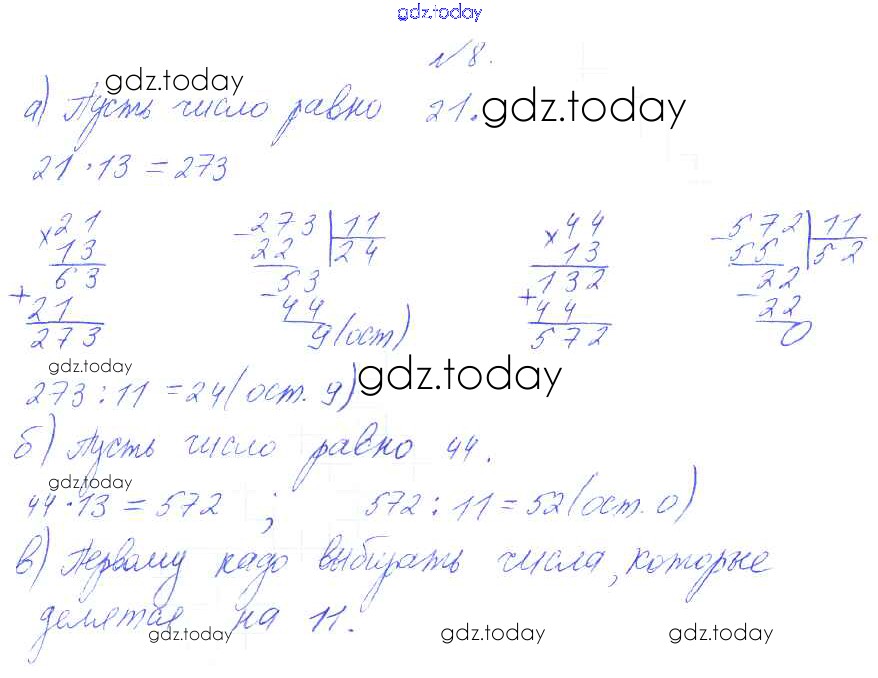 gdz.today
№8.
gdz.today
а) Пусть число равно 21.
gdz.today
21 · 13 = 273
× 21   - 273 | 11   × 44   - 572 | 11
13   22   24   13   55   52
63   53   132   22
+ 21   - 44   + 44   - 22
273   9 (ост)   572   0
gdz.today
273 : 11 = 24 (ост. 9)
gdz.today
б) Пусть число равно 44.
gdz.today
44 · 13 = 572 ; 572 : 11 = 52 (ост. 0)
в) Первому надо выбирать числа, которые
делятся на 11.
gdz.today gdz.today gdz.today